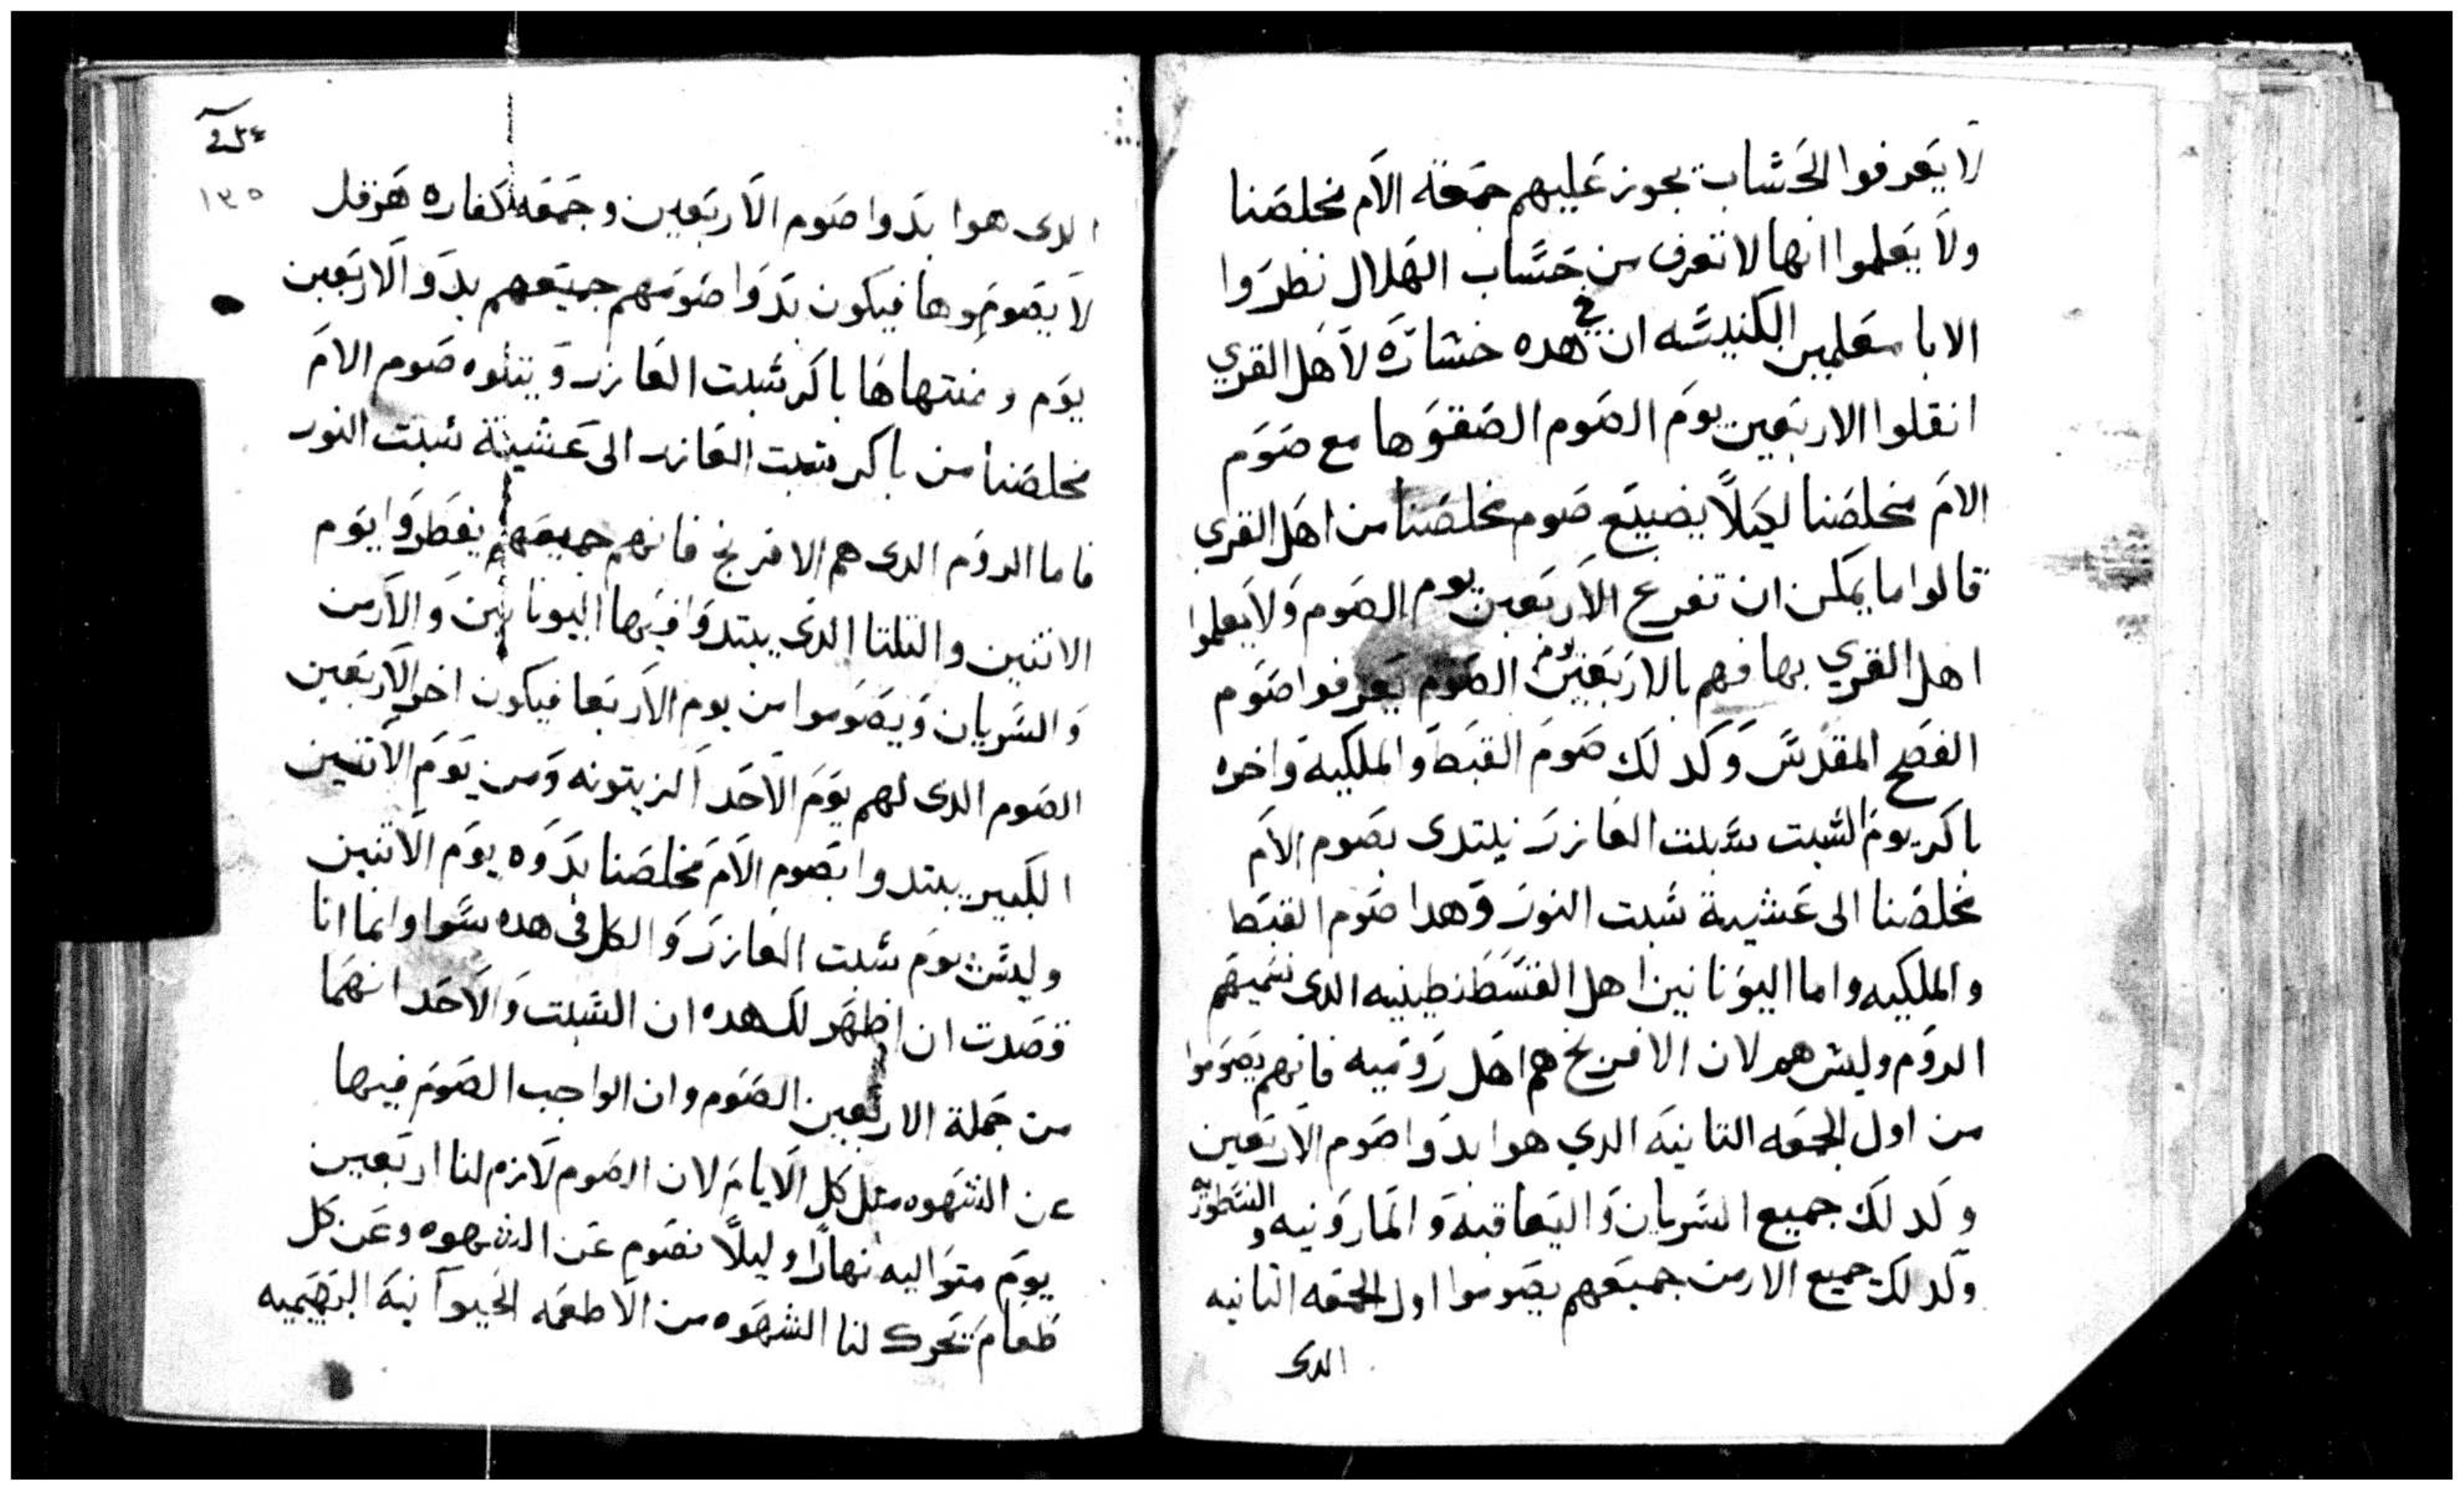 لا يعرفوا الحساب يجوز عليهم جمعة الام مخلصنا
ولا يعلموا انها لا تعرف من حساب الهلال نظروا
الابا معلمين الكنيسه ان في هده خسارة لاهل القري
انقلوا الاربعين يوم الصوم الصقوها مع صوم
الام مخلصنا ليلا يضيع صوم مخلصنا من اهل القري
قالوا ما يمكن ان تفرع الاربعين يوم الصوم ولا يعلموا
اهل القري بها فهم بالاربعين يوم الصوم يعرفوا صوم
الفصح المقدس وكدلك صوم القبط والملكيه واخره
باكر يوم السبت سبت العازر يبتدى بصوم الام
مخلصنا الى عشية سبت النور وهدا صوم القبط
والملكيه واما اليونانين اهل القسطنطينيه الدى نسميهم
الروم وليس هم لان الافرنج هم اهل روميه فانهم يصوموا
من اول الجمعه التانيه الدي هوا بدوا صوم الاربعين
وكدلك جميع السريان واليعاقبه والمارونيه والنسطوريه
وكدلك جميع الارمن جميعهم يصوموا اول الجمعه التانيه
الدى
١٣٥
الدى هوا بدوا صوم الاربعين وجمعه كفاره هرقل
لا يصوموها فيكون بدوا صومهم جميعهم بدو الاربعين
يوم ومنتهاها باكر سبت العازر ويتلوه صوم الام
مخلصنا من باكر سبت العازر الى عشية سبت النور
فاما الروم الدى هم الافرنج فانهم جميعهم يفطروا يوم
الاتنين والتلتا الدى يبتدوا فيها اليونانين والارمن
والسريان ويصوموا من يوم الاربعا فيكون اخر الاربعين
الصوم الدى لهم يوم الاحد الزيتونه ومن يوم الاتنين
الكبير يبتدوا بصوم الام مخلصنا بدوه يوم الاتنين
وليس يوم سبت العازر والكل في هده سوا وانما انا
قصدت ان اظهر لك هده ان السبت والاحد انهما
من جملة الاربعين الصوم وان الواجب الصوم فيها
عن الشهوه متل كل الايام لان الصوم لازم لنا اربعين
يوم متواليه نهارا وليلا نصوم عن الشهوه وعن كل
طعام تحرك لنا الشهوه من الاطعمه الحيوانيه البهيميه